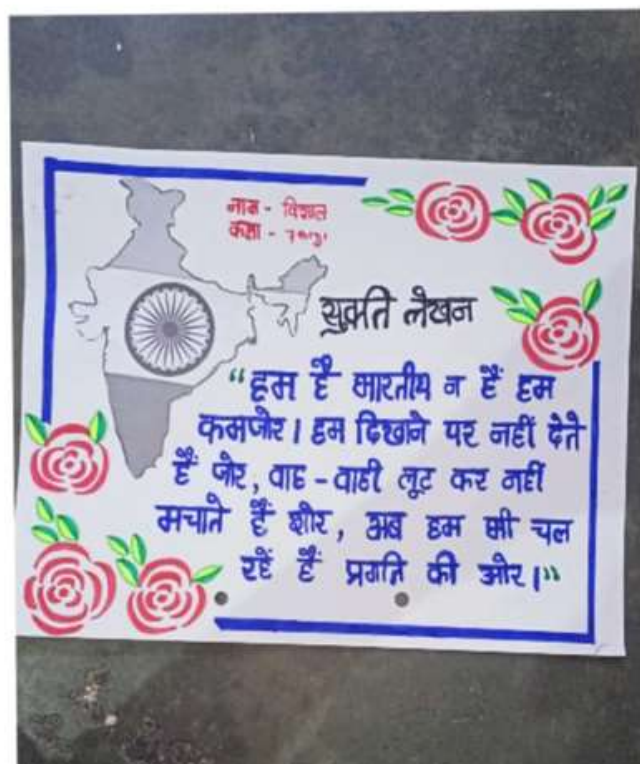 नाम - विशाल
कक्षा -
सुक्ति लेखन
“हम है भारतीय न हैं हम
कमजोर। हम दिखाने पर नहीं देते
हैं जोर, वाह - वाही लूट कर नहीं
मचाते हैं शोर, अब हम भी चल
रहें हैं प्रगति की ओर।”